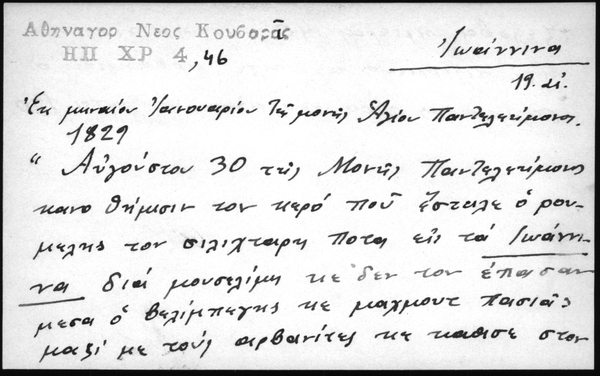 Αθηναγορ Νεος Κουβαρᾶς
ΗΠ ΧΡ 4, 46
Ἰωάννινα
19. αἰ.
Ἐκ μηναίου Ἰανουαρίου τῆς μονῆς Ἁγίου Παντελεήμονος.
1829
"Αὐγούστου 30 τῆς Μονῆς Παντελεήμονος
κανο θήμισιν τον κερό ποῦ ἔσταλε ὁ ρου-
μελης τον σιλιχταρη ποτα εἰς τά Ἰωάννι-
να διά μουσελίμη κε δεν τον ἐπασαν
μεσα ὁ βελίμπεγης κε μαχμουτ πασιᾶς
μαζί με τούς αρβανίτες κε καθισε στον